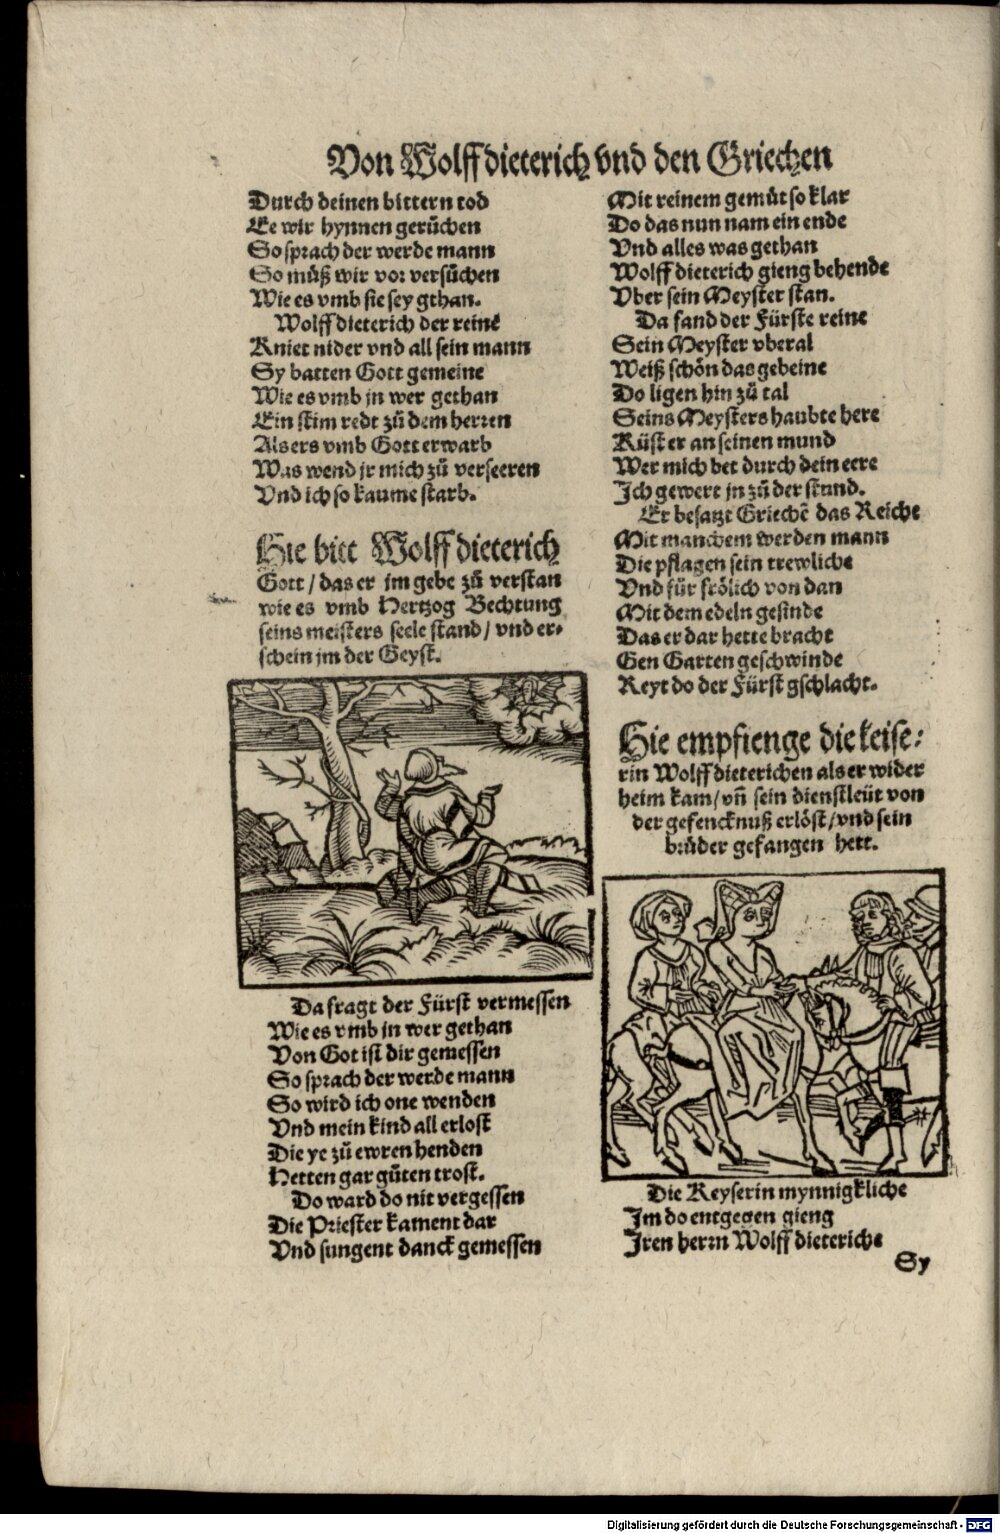 Von Wolffdieterich vnd den Griechen
Durch deinen bittern tod
Ee wir hynnen gerůchen
So sprach der werde mann
So můß wir vor versůchen
Wie es vmb sie sey gthan.
Wolffdieterich der reine
Kniet nider vnd all sein mann
Sy batten Gott gemeine
Wie es vmb jn wer gethan
Ein stim redt zů dem herren
Als ers vmb Gott erwarb
Was wend jr mich zů verseeren
Vnd ich so kaume starb.
Hie bitt Wolffdieterich
Gott / das er jm gebe zů verstan
wie es vmb Hertzog Bechtung
seins meisters seele stand / vnd er-
schein jm der Geyst.
Da fragt der Fürst vermessen
Wie es vmb jn wer gethan
Von Got ist dir gemessen
So sprach der werde mann
So wird ich one wenden
Vnd mein kind all erlost
Die ye zů ewren henden
Hetten gar gůten trost.
Do ward do nit vergessen
Die Priester kament dar
Vnd sungent danck gemessen
Mit reinem gemůt so klar
Do das nun nam ein ende
Vnd alles was gethan
Wolffdieterich gieng behende
Vber sein Meyster stan.
Da fand der Fürste reine
Sein Meyster vberal
Weiß schön das gebeine
Do ligen hin zů tal
Seins Meysters haubte here
Küst er an seinen mund
Wer mich bet durch dein eere
Ich gewert jn zů der stund.
Er besatzt Griechē das Reiche
Mit manchem werden mann
Die pflagen sein trewliche
Vnd für frölich von dan
Mit dem edeln gesinde
Das er dar hette bracht
Gen Garten geschwinde
Reyt do der Fürst gschlacht.
Hie empfienge die keise-
rin Wolffdieterichen als er wider
heim kam / vn̄ sein dienstleüt von
der gefencknuß erlöst / vnd sein
brüder gefangen hett.
Die Keyserin mynnigkliche
Im do entgegen gieng
Iren herrn Wolffdieteriche
Sy
Digitalisierung gefördert durch die Deutsche Forschungsgemeinschaft - DFG